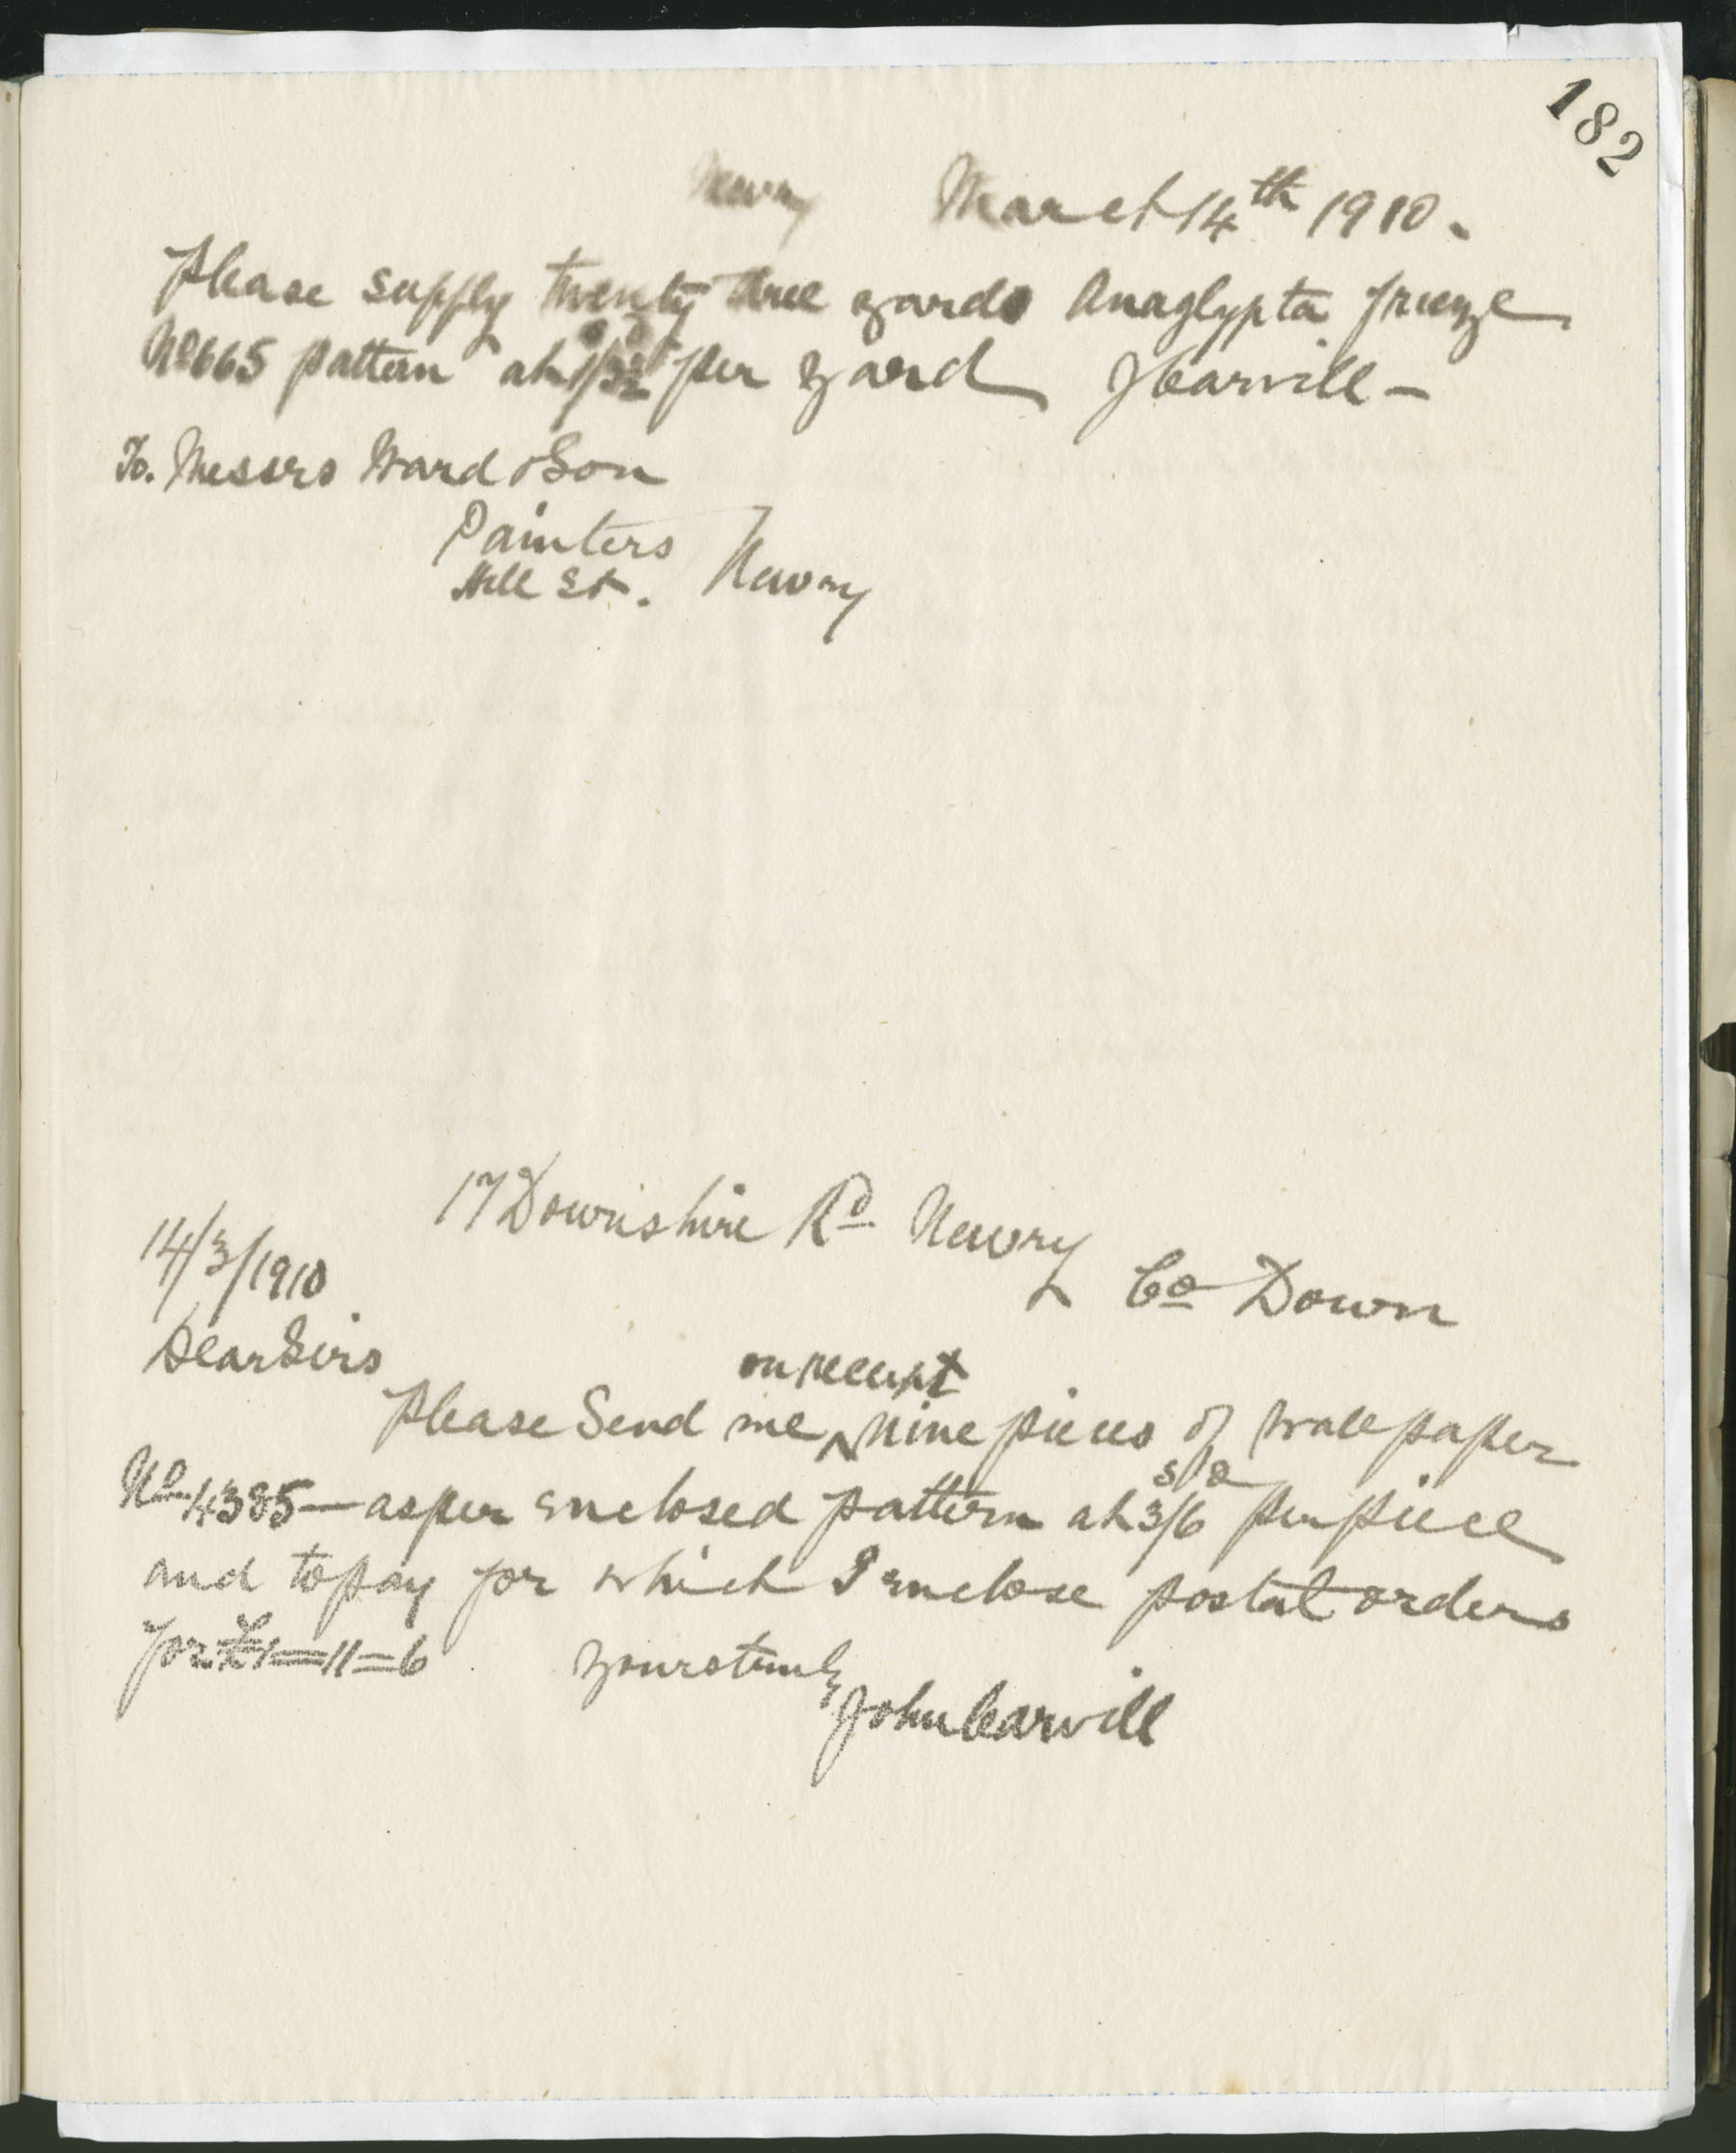 182
Newry March 14th 1910.
Please supply twenty three yards Anaglypta frieze
No 665 pattern at per yard J Carvill -
To. Messrs Ward & Son
Painters
Hill St. Newry
17 Downshire Rd. Newry
Co Down
14/3/1910
Dear Sirs
on receipt
Please Send me ^ nine pieces of wallpaper
s/d
No 4385 - as per enclosed pattern at 3/6 per piece
and to pay for which I enclose postal orders
for £1=11=6 yours truly
John Carvill